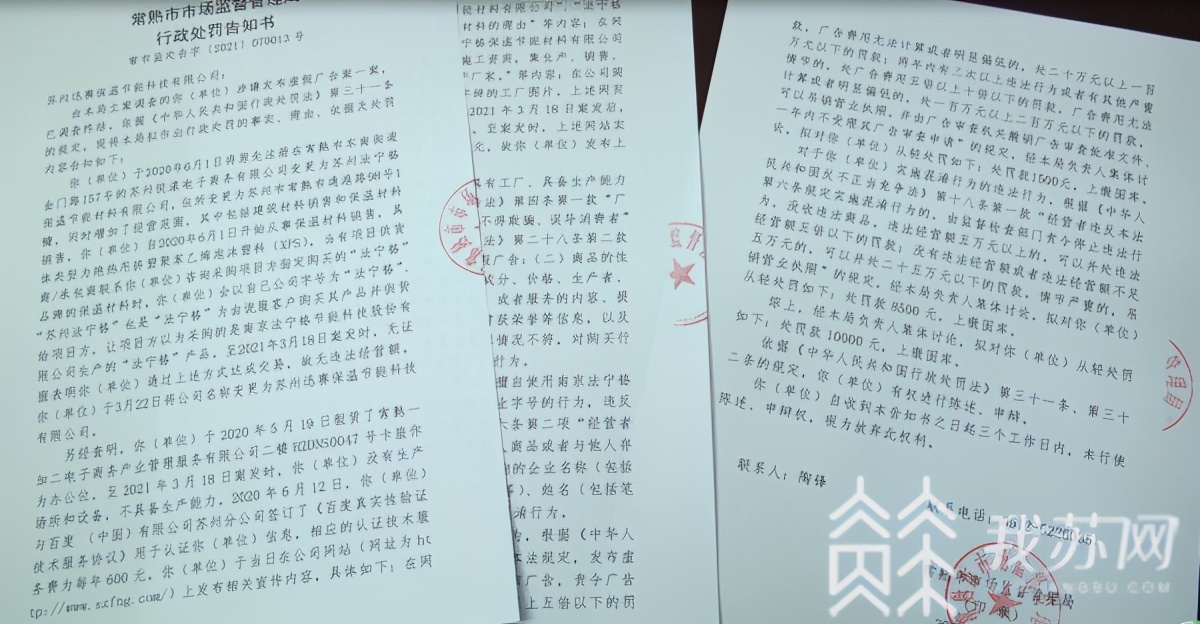 常熟市市场监督管理局
行政处罚告知书
常市监处告字〔2021〕070013号
苏州场赛保温节能科技有限公司：
由本局立案调查的你（单位）涉嫌发布虚假广告案一案，
已调查终结，依据《中华人民共和国行政处罚法》第三十一条
的规定，现将本局拟作出行政处罚的事实、理由、依据及处罚
内容告知如下：
你（单位）于2020年6月1日将原先注册在常熟市
金门路157号的苏州
电子商务有限公司变更为苏州法宁格
保温节能材料有限公司，住所变更为苏州市常熟市
号1
幢，同时增加了经营范围，其中包括建筑材料销售和保温材料
销售，你（单位）自2020年6月1日开始从事保温材料销售，具
体类型为绝热用挤塑聚苯乙烯泡沫塑料（XPS），当有项目供货
商/承包商联系你（单位）咨询采购项目方指定购买的“法宁格”
品牌的保温材料时，你（单位）会以自己公司字号为“法宁格”，
“苏州法宁格”也是“法宁格”为由说服客户购买其产品并供货
给项目方，让项目方以为采购的是南京法宁格节能科技股份有
限公司生产的“法宁格”产品，至2021年3月18日案发时，无证
据表明你（单位）通过上述方式达成交易，故无违法经营额，
你（单位）于3月22日将公司名称变更为苏州场赛保温节能科技
有限公司。
另经查明，你（单位）于2020年5月19日租赁了常熟
电子商务产业管理服务有限公司二楼
号卡座作
为办公位，至2021年3月18日案发时，你（单位）没有生产
场所和设备，不具备生产能力。2020年6月12日，你（单位）
与百度（中国）有限公司苏州分公司签订了《百度真实性验证
技术服务协议》用于认证你（单位）信息，相应的认证技术服
务费为每年600元。你（单位）于当日在公司网站（网址为ht
tp://www.szfng.com/）上发布相关宣传内容，具体如下：在网
材料有限公司”、“法宁格
材料的理由”等内容；在公司
宁格保温节能材料有限公司
施工资质，集生产、销售、
厂家。”等内容；在公司网
的工厂图片，上述网页
2021年3月18日案发后，
至案发时，上述网站实
元，故你（单位）发布上
有工厂、具备生产能力
法》第四条第一款“广
不得欺骗、误导消费者”
法》第二十八条第二款
假广告：（二）商品的性
成分、价格、生产者、
或者服务的内容、提
曾获荣誉等信息，以及
情况不符，对购买行
行为。
擅自使用南京法宁格
业字号的行为，违反
六条第二项“经营者
人商品或者与他人存
的企业名称（包括
）、姓名（包括笔
淆行为。
，根据《中华人
本法规定，发布虚
广告，责令广告
上五倍以下的罚
款，广告费用无法计算或者明显偏低的，处二十万元以上一百
万元以下的罚款；两年内有三次以上违法行为或者有其他严重
情节的，处广告费用五倍以上十倍以下的罚款，广告费用无法
计算或者明显偏低的，处一百万元以上二百万元以下的罚款，
可以吊销营业执照，并由广告审查机关撤销广告审查批准文件、
一年内不受理其广告审查申请”的规定，经本局负责人集体讨
论，拟对你（单位）从轻处罚如下：处罚款1500元，上缴国库。
对于你（单位）实施混淆行为的违法行为，根据《中华人
民共和国反不正当竞争法》第十八条第一款“经营者违反本法
第六条规定实施混淆行为的，由监督检查部门责令停止违法行
为，没收违法商品。违法经营额五万元以上的，可以并处违法
经营额五倍以下的罚款；没有违法经营额或者违法经营额不足
五万元的，可以并处二十五万元以下的罚款。情节严重的，吊
销营业执照”的规定，经本局负责人集体讨论，拟对你（单位）
从轻处罚如下：处罚款8500元，上缴国库。
综上，经本局负责人集体讨论，拟对你（单位）从轻处罚
如下：处罚款10000元，上缴国库。
依据《中华人民共和国行政处罚法》第三十一条、第三十
二条的规定，你（单位）有权进行陈述、申辩。
你（单位）自收到本告知书之日起三个工作日内，未行使
陈述、申辩权，视为放弃此权利。
联系人：陶
联系电话：
（印章）
我苏网